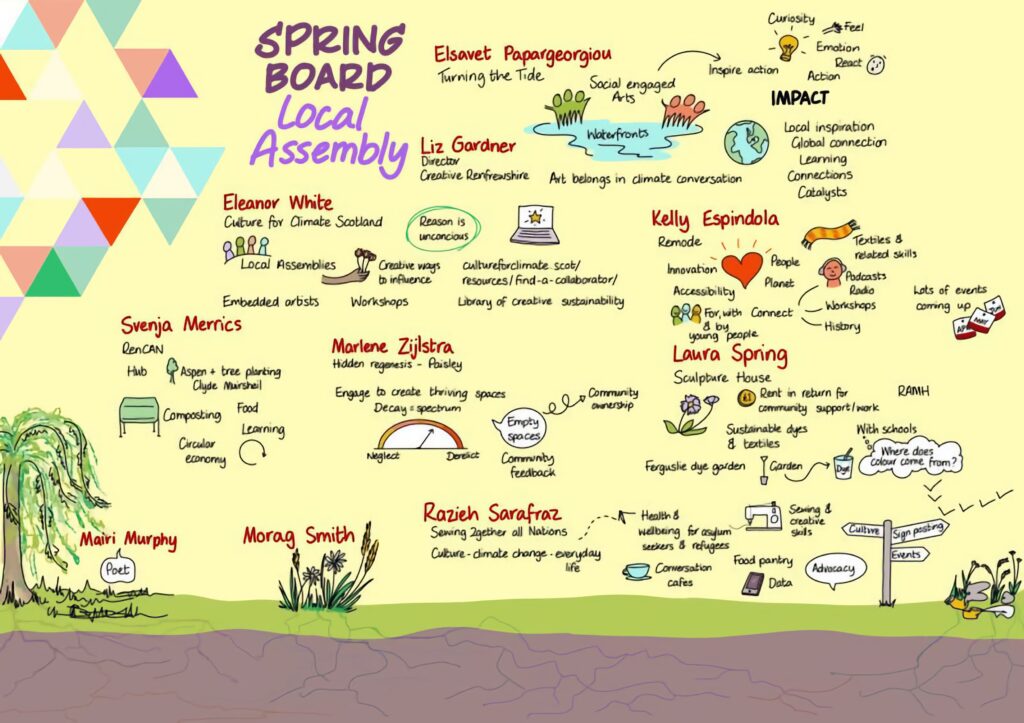 SPRING
BOARD
Local
Assembly
Elsavet Papargeorgiou
Turning the Tide
Social engaged
Arts
Waterfronts
Inspire action
Curiosity
Feel
Emotion
React
Action
IMPACT
Local inspiration
Global connection
Learning
Connections
Catalysts
Liz Gardner
Director
Creative Renfrewshire
Art belongs in climate conversation
Eleanor White
Culture for Climate Scotland
Reason is
unconcious
Local Assemblies
Creative ways
to influence
cultureforclimate.scot/
resources/find-a-collaborator/
Embedded artists
Workshops
Library of creative sustainability
Kelly Espindola
Remode
Innovation
Accessibility
People
Planet
For, with
& by
young people
Connect
Textiles &
related skills
Podcasts
Radio
Workshops
History
Lots of events
coming up
APR
MAY
JUN
Svenja Merrics
RenCAN
Hub
Aspen + tree planting
Clyde Muirsheil
Composting
Food
Learning
Circular
economy
Marlene Zijlstra
Hidden regenesis - Paisley
Engage to create thriving spaces
Decay = spectrum
Neglect
Derelict
Empty
spaces
Community
feedback
Community
ownership
Laura Spring
Sculpture House
Rent in return for
community support/work
RAMH
Sustainable dyes
& textiles
With schools
Where does
colour come from?
Ferguslie dye garden
Garden
Dye
Mairi Murphy
Poet
Morag Smith
Razieh Sarafraz
Sewing 2gether all Nations
Culture - climate change - everyday
life
Health &
Wellbeing for asylum
seekers & refugees
Sewing &
creative
skills
Conversation
cafes
Food pantry
Data
Advocacy
Culture
Sign posting
Events